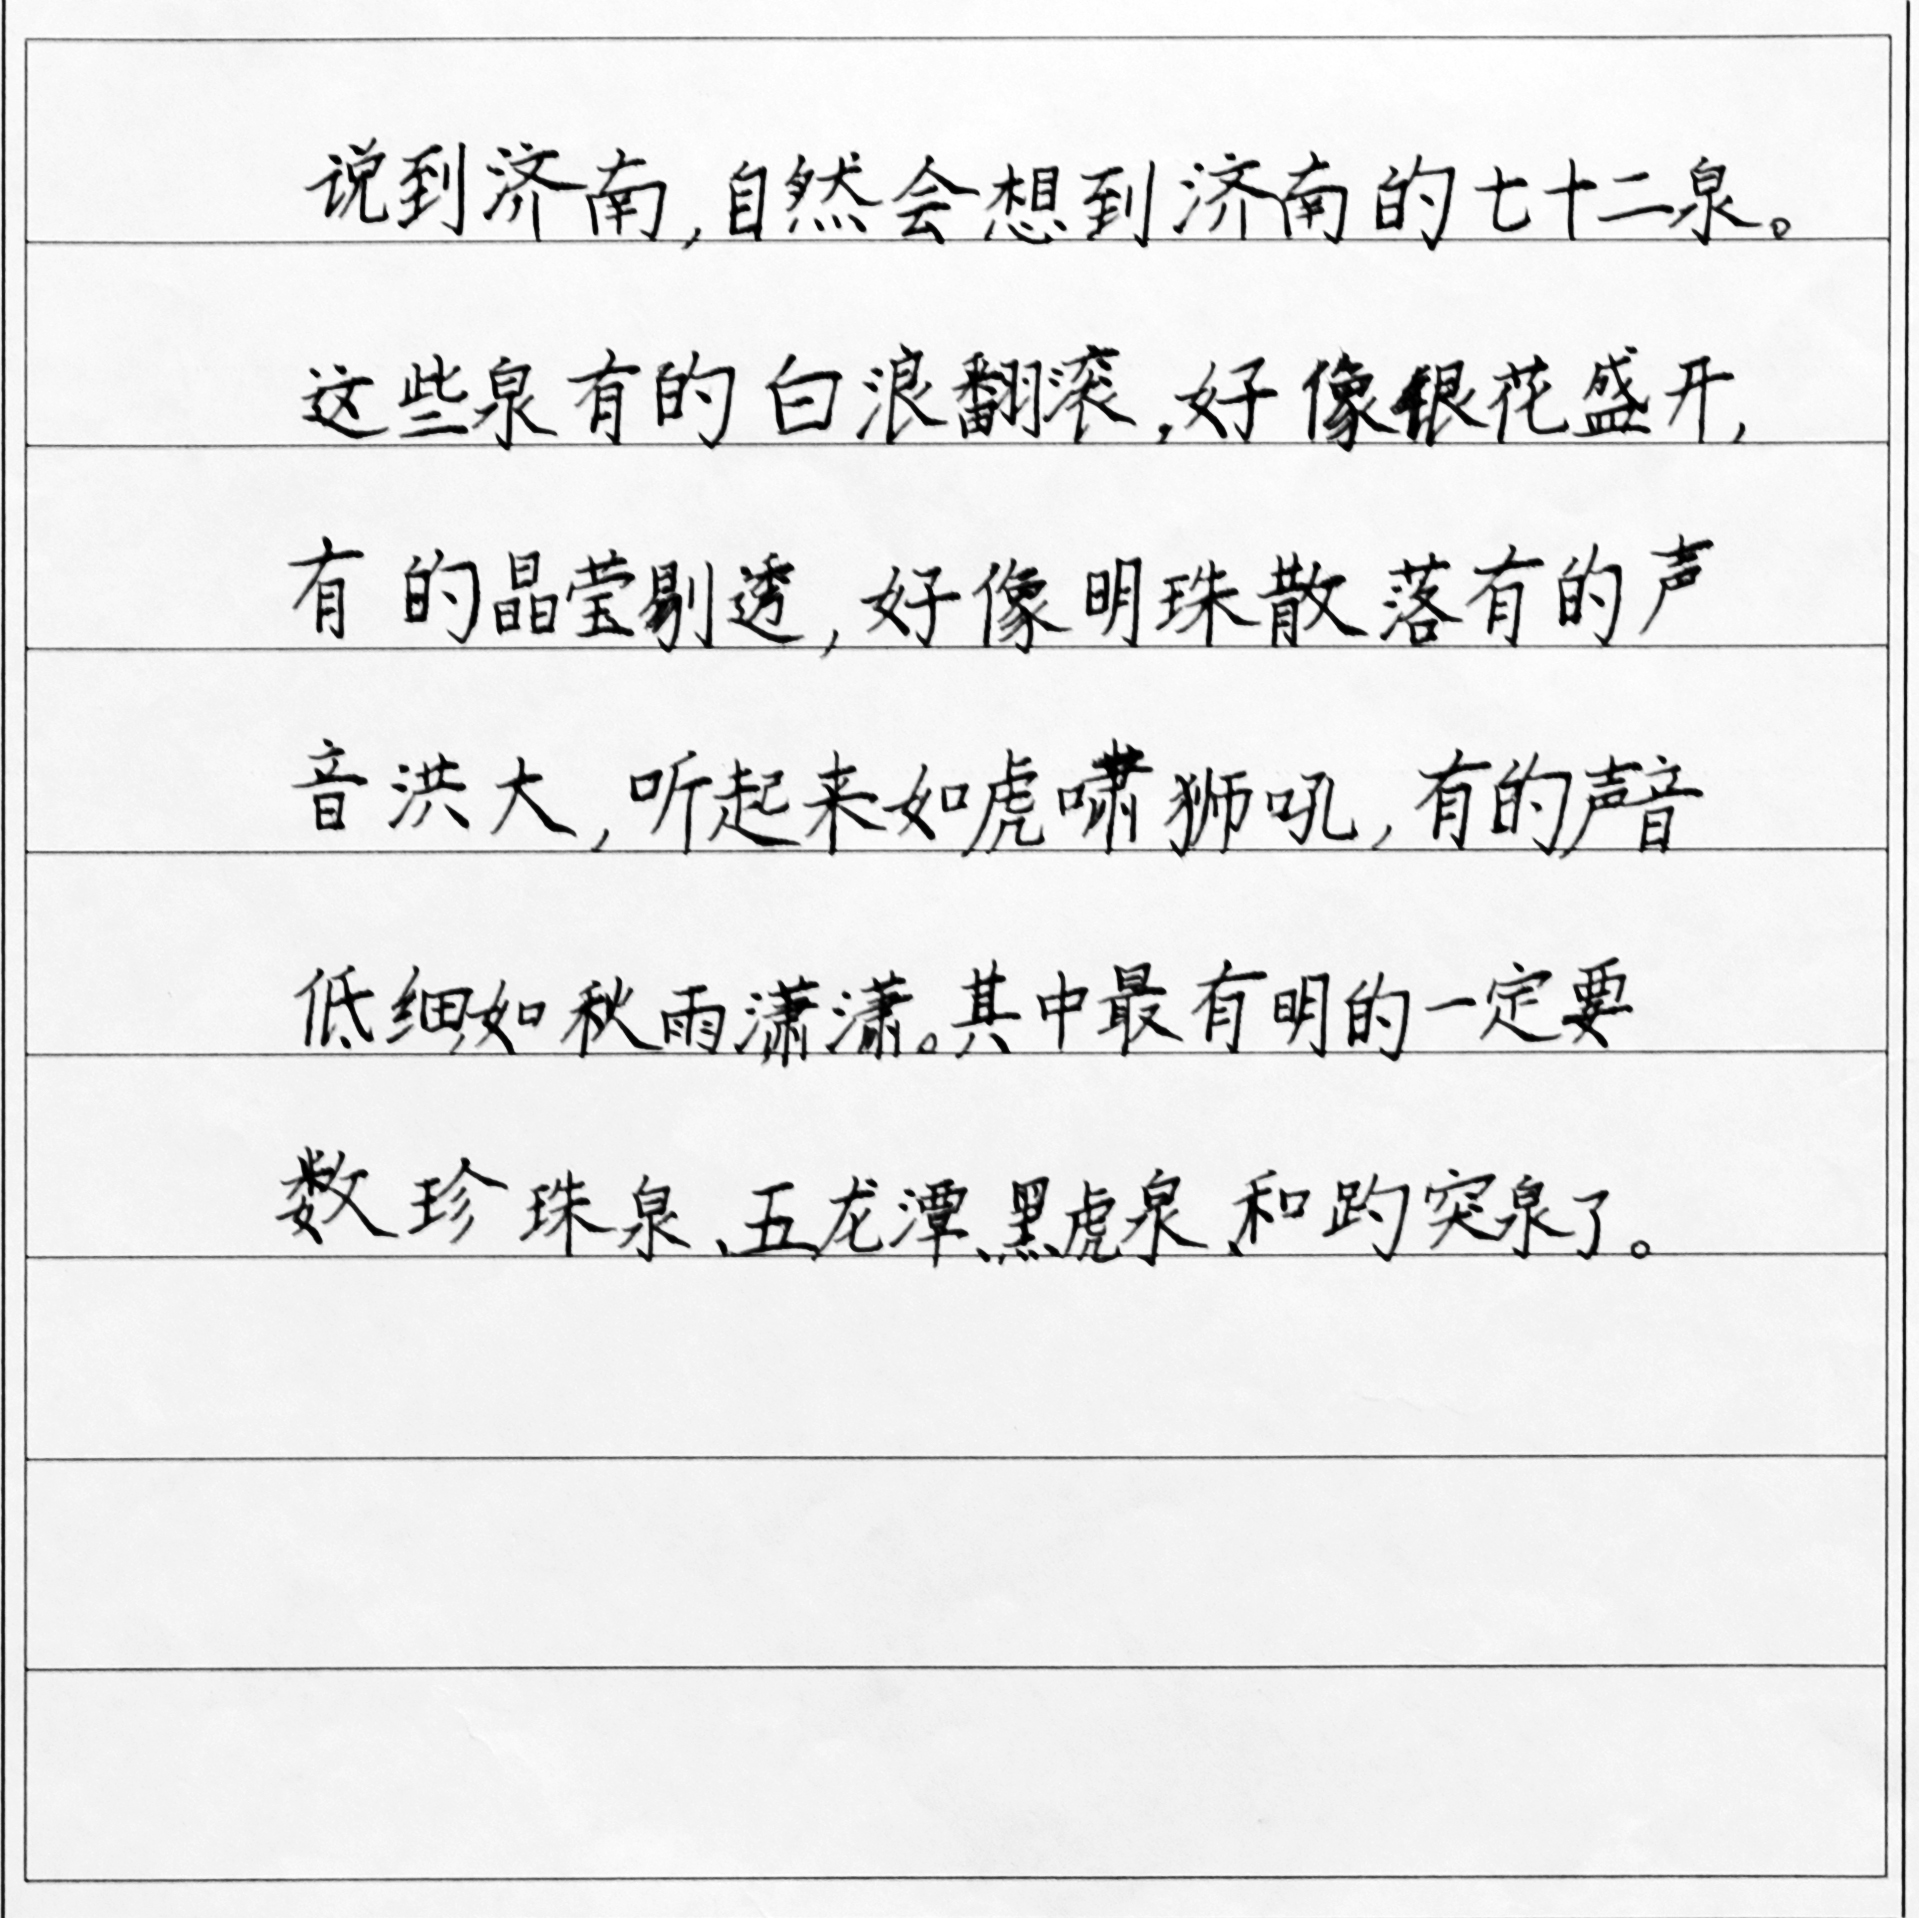 说到济南,自然会想到济南的七十二泉。
这些泉有的白浪翻滚,好像银花盛开,
有的晶莹剔透,好像明珠散落有的声
音洪大,听起来如虎啸狮吼,有的声音
低细如秋雨潇潇。其中最有明的一定要
数珍珠泉、五龙潭、黑虎泉、和趵突泉了。